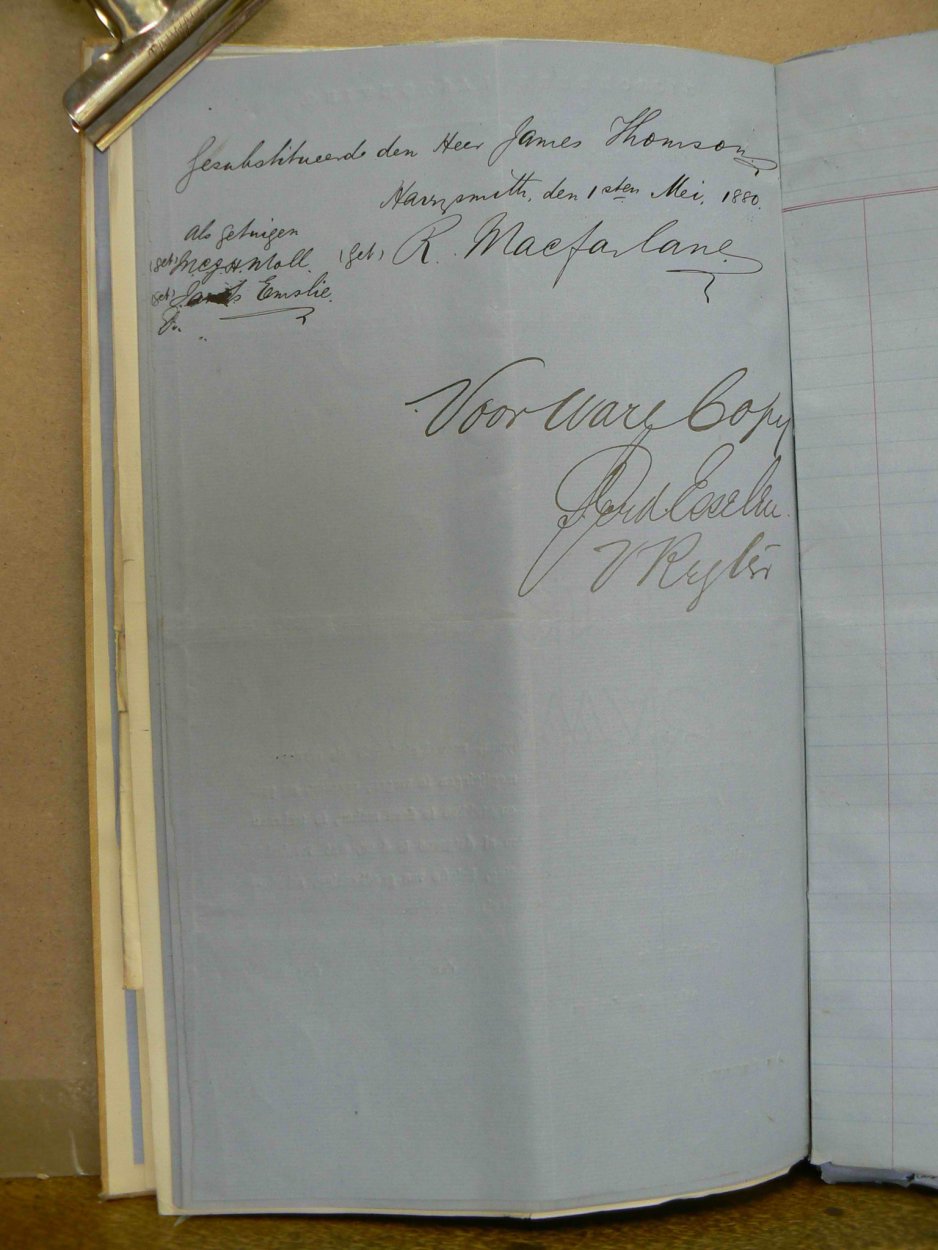 Gesubstitueerde den Heer James Thomson
Harrysmith, den 1sten Mei, 1880.
als getuigen
(get) R. Macfarlane
(get) McG. H. Moll.
(get) James Emslie
Voor Ware Copy
Ferd Esselen